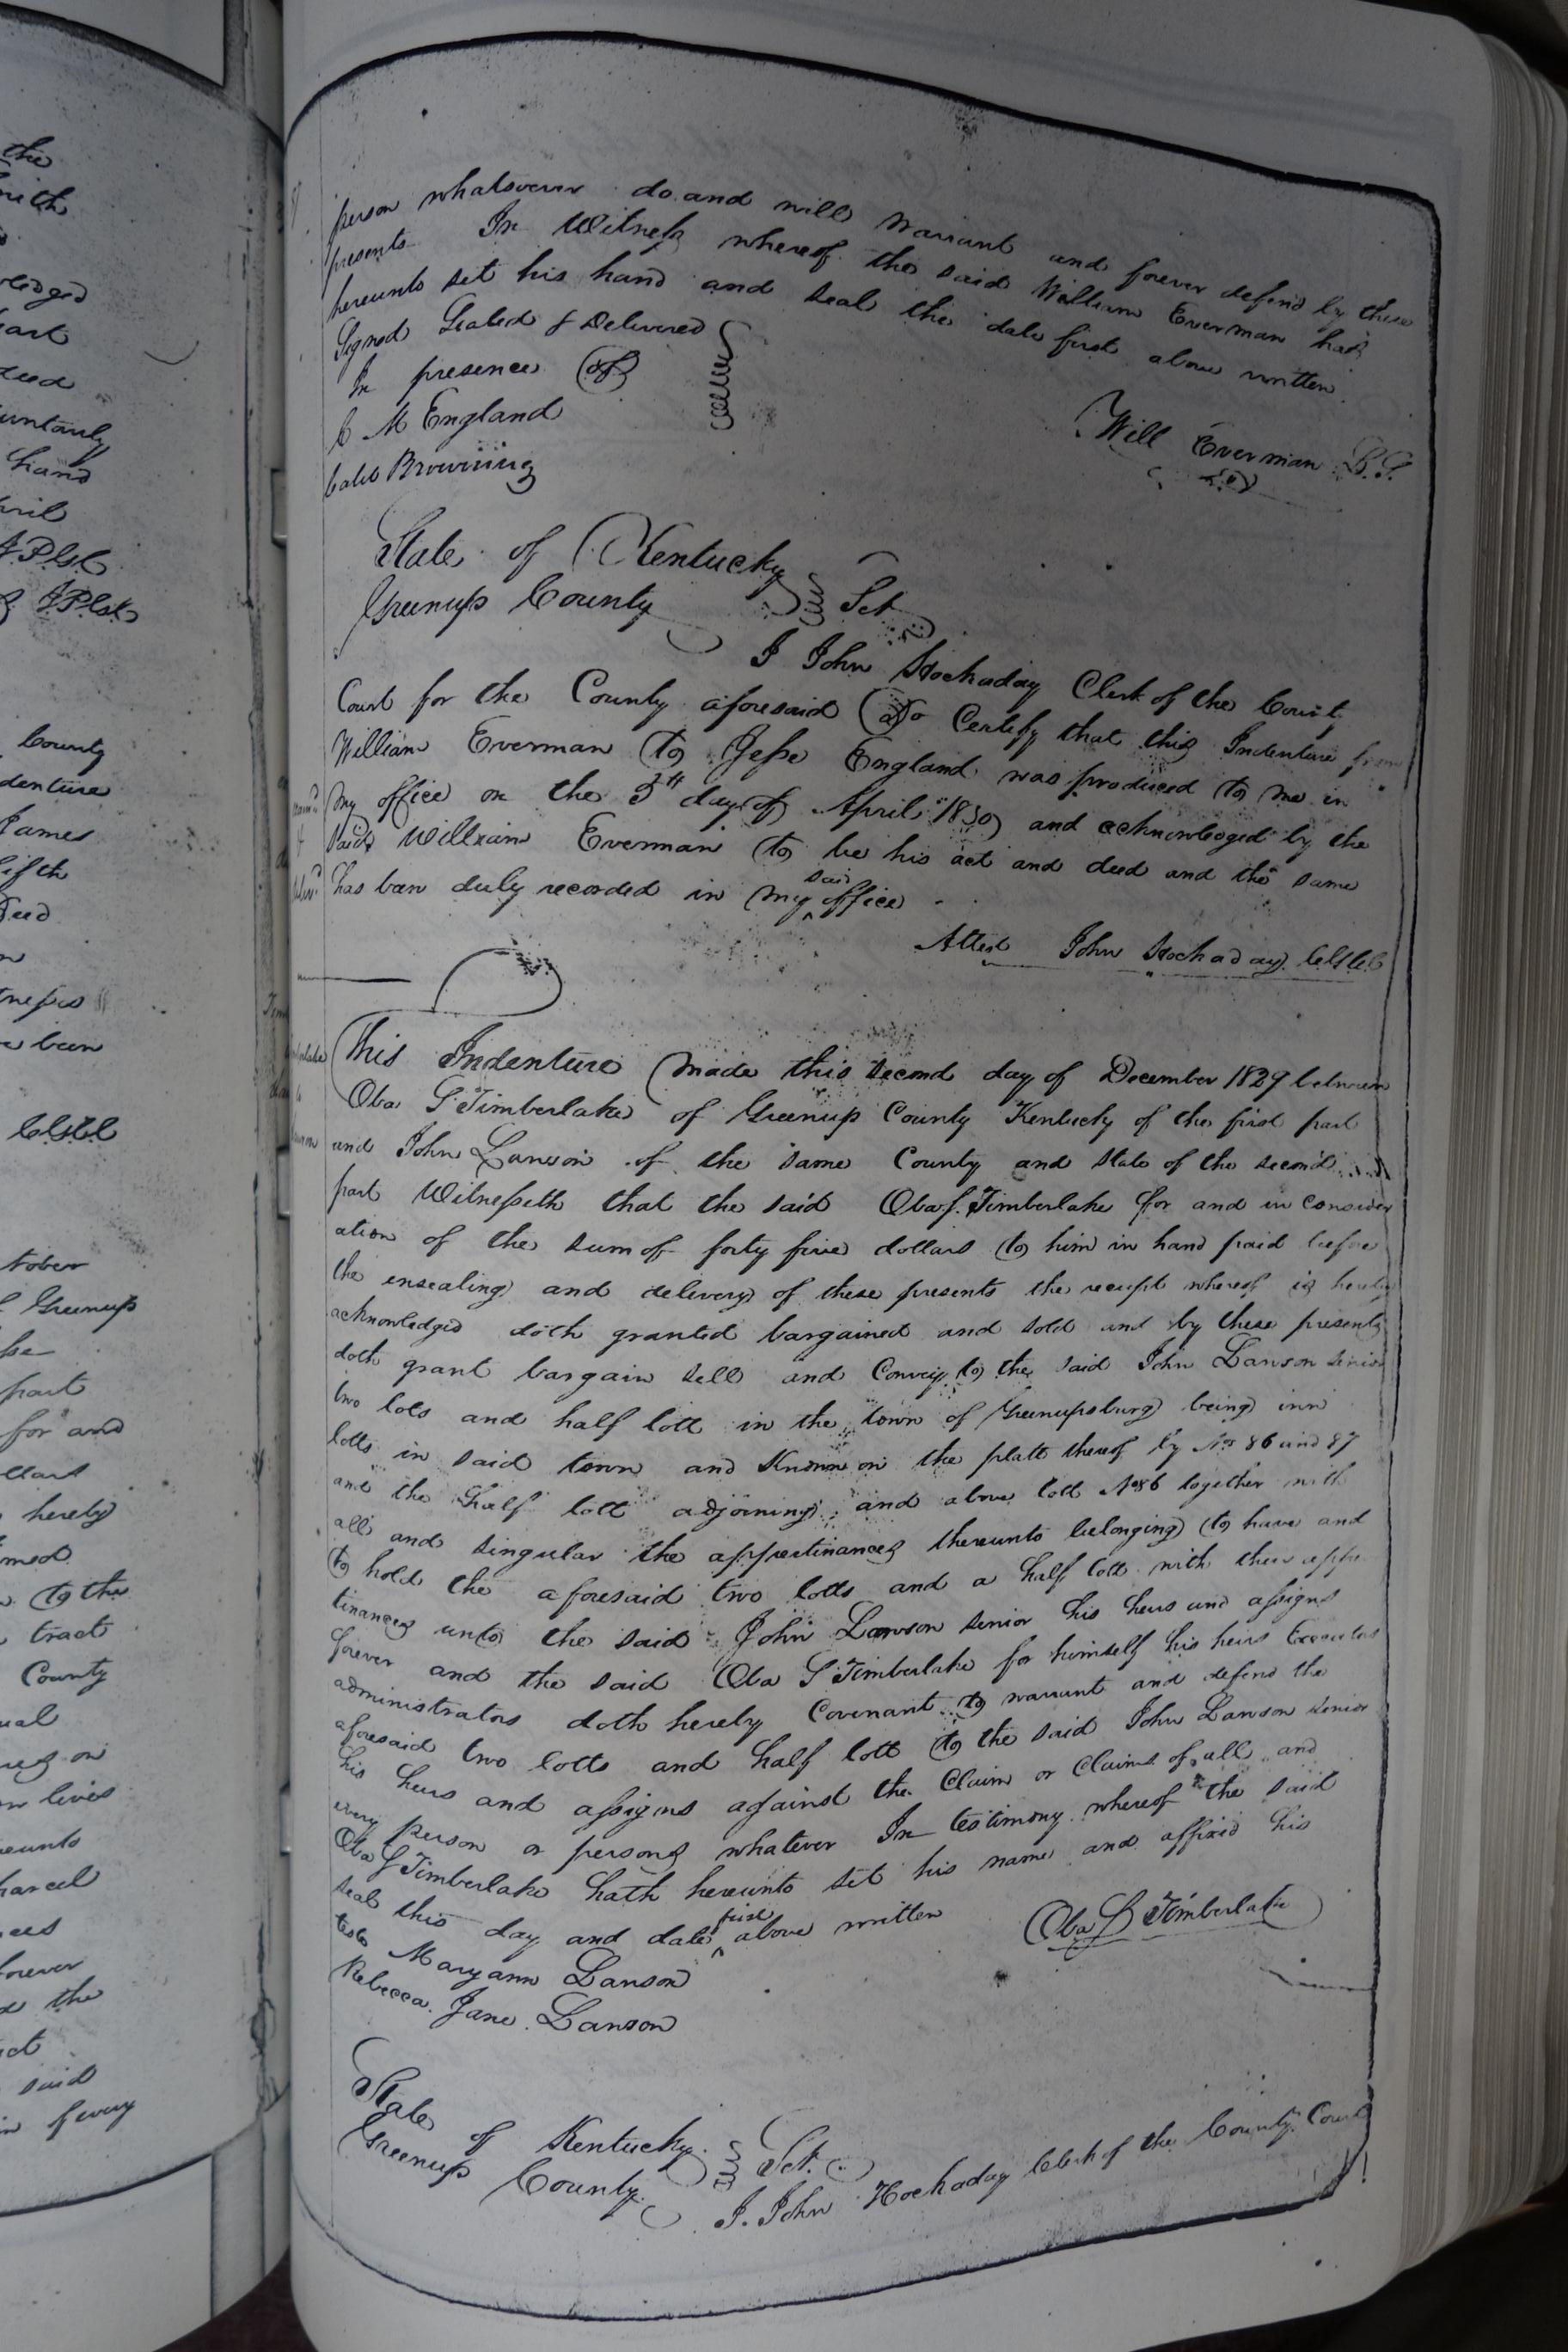 the
ledged
part
deed
hand
County
denture
James
fifth
been
tober
Greenup
part
for and
hereby
to the
tract
County
lives
forever
the
said
of every
person whatsoever do and will warrant and forever defend by these
presents In Witness whereof the said William Everman hath
hereunto set his hand and seal the date first above written
Signed Sealed & Delivered
In presence of
C M England
Caleb Browning
Will Everman L.S.
State of Kentucky
Greenup County Sct
I John Hockaday Clerk of the County
Court for the County aforesaid do Certify that this Indenture from
William Everman to Jesse England was produced to me in
my office on the day of April 1830 and acknowledged by the
said William Everman to be his act and deed and the same
has been duly recorded in my said office
Attest John Hockaday
This Indenture made this second day of December 1829 between
Oba S Timberlake of Greenup County Kentucky of the first part
and John Lawson of the same County and State of the second
part Witnesseth that the said Oba S. Timberlake for and in consider
ation of the sum of forty five dollars to him in hand paid before
the ensealing and delivery of these presents the receipt whereof is hereby
acknowledged doth granted bargained and sold and by these presents
doth grant bargain sell and Convey to the said John Lawson senior
two lots and half lott in the town of Greenupsburg being inn
lotts in said town and Known on the platt thereof by Nos 86 and 87
and the half lott adjoining and above lott No 86 together with
all and singular the appertinances thereunto belonging to have and
to hold the aforesaid two lotts and a half lott with their appe
tinances unto the said John Lawson senior his heirs and assigns
forever and the said Oba S Timberlake for himself his heirs Executors
administrators doth hereby Covenant to warrant and defend the
aforesaid two lotts and half lott to the said John Lawson senior
his heirs and assigns against the Claim or Claims of all and
every person or persons whatever In testimony whereof the said
Oba S Timberlake hath hereunto set his name and affixed his
seal this day and date first above written
Oba S Timberlake
teste Maryann Lawson
Rebecca Jane Lawson
State of Kentucky
Greenup County Sct.
I. John Hockaday Clerk of the County Court